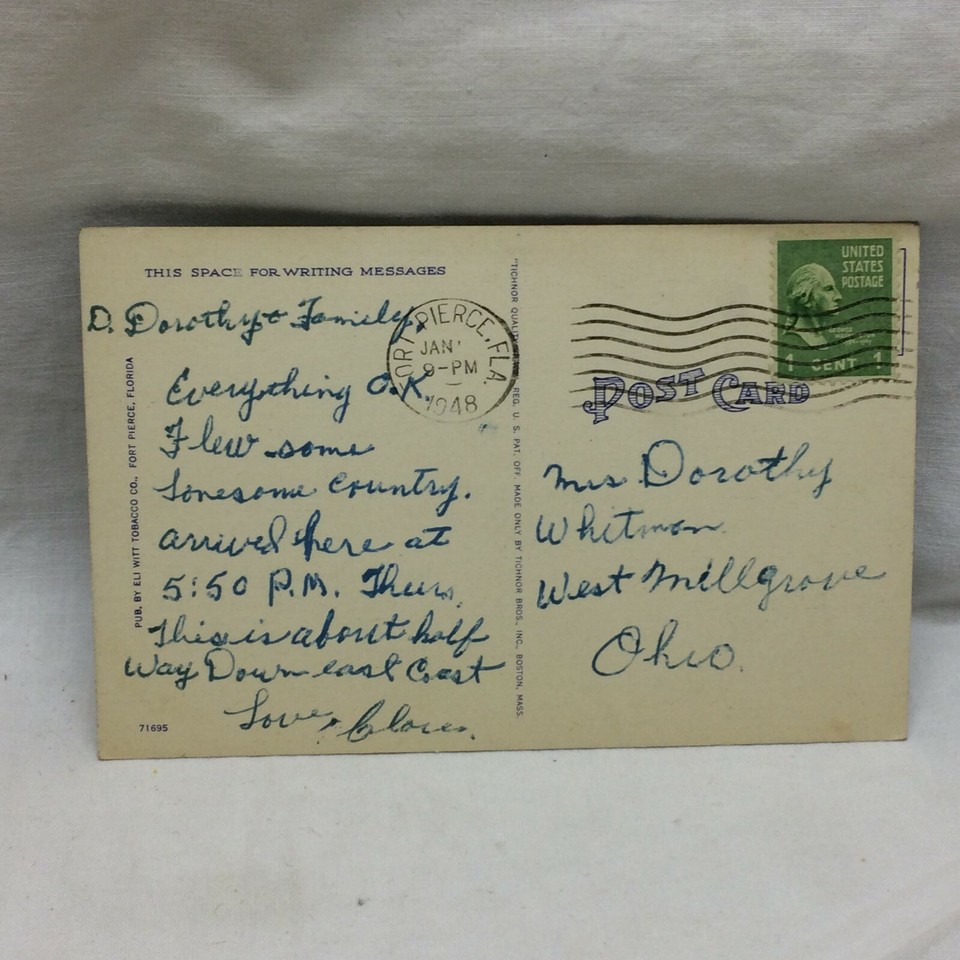 THIS SPACE FOR WRITING MESSAGES
D. Dorothy & Family,
Everything O.K.
Flew some
lonesome country.
arrived here at
5:50 P.M. Thurs.
This is about half
Way Down east Coast
Love,
71695
PUB. BY ELI WITT TOBACCO CO., FORT PIERCE, FLORIDA
FORT PIERCE, FLA.
JAN
9-PM
1948
"TICHNOR QUALITY REG. U. S. PAT. OFF. MADE ONLY BY TICHNOR BROS., INC., BOSTON, MASS.
UNITED
STATES
POSTAGE
1 CENT 1
POST CARD
Mrs Dorothy
Whitman
West Millgrove
Ohio.